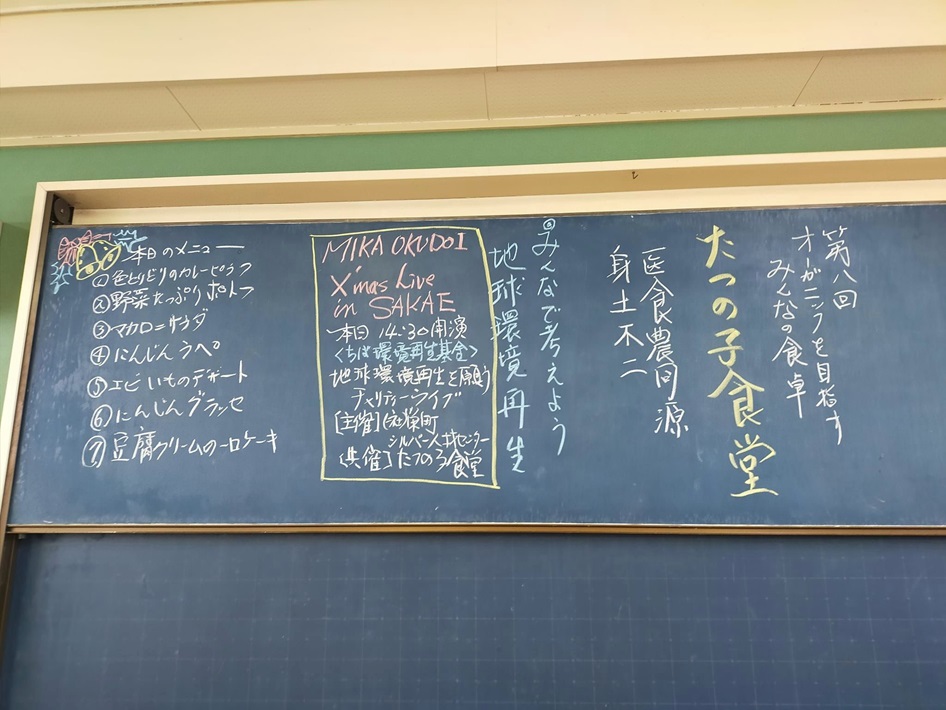 第八回
オーガニックを目指す
みんなの食卓
たつの子食堂
医食農同源
身土不二
みんなで考えよう
地球環境再生
MIKA OKUDOI
X'mas Live
in SAKAE
本日 14:30開演
<ちば環境再生基金>
地球環境再生を願う
チャリティーライブ
[主催] 栄町
シルバー人材センター
[共催] たつの子食堂
本日のメニュー
①色とりどりのカレーピラフ
②野菜たっぷりポトフ
③マカロニサラダ
④にんじんラペ
⑤エビいものデザート
⑥にんじんグラッセ
⑦豆腐クリームのーロケーキ